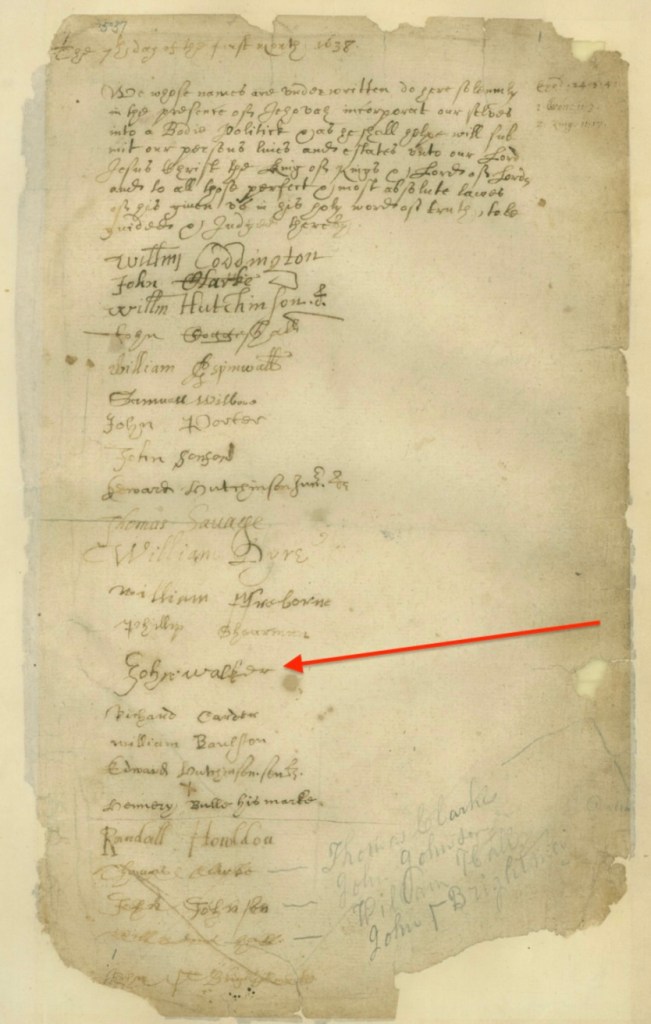 3537
The 7th day of the first month 1638.
We whose names are underwritten do here solemnly
in the presence of Jehovah incorporat our selves
into a Bodie Politick & as he shall helpe will sub
mit our persons lives and estates unto our Lord
Jesus Christ the King of Kings & Lord of Lords
and to all those perfect & most absolute lawes
of his given us in his holy word of truth, to be
guided & Judged thereby
Exod. 24. 3. 4
Willm Coddington
John Clarke
Willm Hutchinson
John Coggeshall
William Aspinwall
Samuell Wilbore
John Porter
John Sanford
Edward Hutchinson Junr
Thomas Savage
William Dyre
William Freborne
Phillip Shearman
John walker
Richard Carder
william Baulston
Edward Hutchinson senr
Hennery Bulle his marke
Randall Houldon
Thomas Clarke
John Johnson
William Hall
John Brightman
Thomas Clarke
John Johnson
William Hall
John Brightman